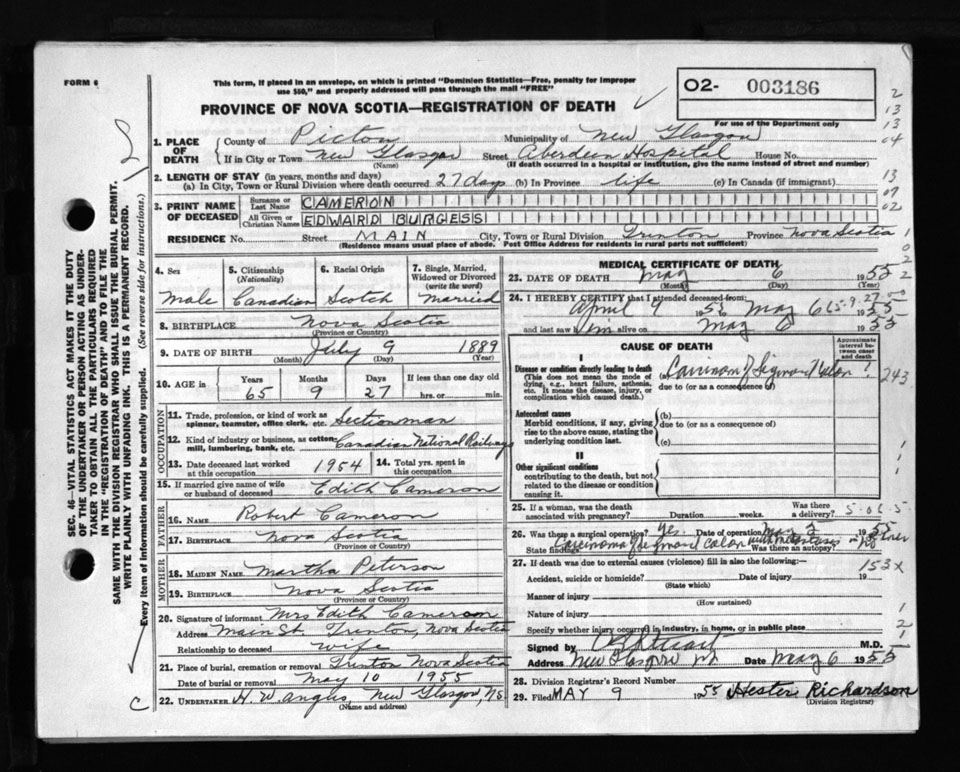 FORM 6
This form, if placed in an envelope, on which is printed "Dominion Statistics—Free, penalty for improper
use $50," and properly addressed will pass through the mail "FREE"
O2- 003186
For use of the Department only
PROVINCE OF NOVA SCOTIA—REGISTRATION OF DEATH
1. PLACE OF DEATH
County of Picton Municipality of New Glasgow
If in City or Town New Glasgow Street Aberdeen Hospital House No.
(Name) (If death occurred in a hospital or institution, give the name instead of street and number)
2. LENGTH OF STAY (in years, months and days)
(a) In City, Town or Rural Division where death occurred 27 days (b) In Province life (c) In Canada (if immigrant)
3. PRINT NAME OF DECEASED
Surname or Last Name CAMERON
All Given or Christian Names EDWARD BURGESS
RESIDENCE No. Street MAIN City, Town or Rural Division Trenton Province Nova Scotia
(Residence means usual place of abode. Post Office Address for residents in rural parts not sufficient)
4. Sex 5. Citizenship (Nationality) 6. Racial Origin 7. Single, Married, Widowed or Divorced (write the word)
Male Canadian Scotch Married
8. BIRTHPLACE Nova Scotia
(Province or Country)
9. DATE OF BIRTH July 9 1889
(Month) (Day) (Year)
10. AGE in Years Months Days If less than one day old
65 9 27 hrs. or min.
OCCUPATION
11. Trade, profession, or kind of work as spinner, teamster, office clerk, etc. Sectionman
12. Kind of industry or business, as cotton-mill, lumbering, bank, etc. Canadian National Railways
13. Date deceased last worked at this occupation 1954 14. Total yrs. spent in this occupation
15. If married give name of wife or husband of deceased Edith Cameron
FATHER
16. NAME Robert Cameron
17. BIRTHPLACE Nova Scotia
(Province or Country)
MOTHER
18. MAIDEN NAME Martha Peterson
19. BIRTHPLACE Nova Scotia
(Province or Country)
20. Signature of informant Mrs Edith Cameron
Address Main St. Trenton, Nova Scotia
Relationship to deceased wife
21. Place of burial, cremation or removal Trenton Nova Scotia
Date of burial or removal May 10 1955
22. UNDERTAKER H. W. Angus, New Glasgow, NS
(Name and address)
MEDICAL CERTIFICATE OF DEATH
23. DATE OF DEATH May 6 1955
(Month) (Day)
24. I HEREBY CERTIFY that I attended deceased from:
April 9 1955 to May 6 1955
65-9-27-00
and last saw him alive on May 6 1955
CAUSE OF DEATH
Approximate interval between onset and death
I
Disease or condition directly leading to death
(This does not mean the mode of dying, e.g., heart failure, asthenia, etc. It means the disease, injury, or complication which caused death.)
Carcinoma of Sigmoid Colon ? 243
due to (or as a consequence of)
Antecedent causes
Morbid conditions, if any, giving rise to the above cause, stating the underlying condition last.
(b)
due to (or as a consequence of)
(c)
II
Other significant conditions
contributing to the death, but not related to the disease or condition causing it.
25. If a woman, was the death associated with pregnancy? Duration weeks. Was there a delivery?
26. Was there a surgical operation? Yes. Date of operation May 2 1955
State findings Carcinoma of Sigmoid Colon with metastases in liver Was there an autopsy? no
27. If death was due to external causes (violence) fill in also the following:— 153x
Accident, suicide or homicide? Date of injury 19
(State which)
Manner of injury
(How sustained)
Nature of injury
Specify whether injury occurred in industry, in home, or in public place
Signed by M.D.
Address New Glasgow NS Date May 6 1955
28. Division Registrar's Record Number
29. Filed MAY 9 1955 Hester Richardson
(Division Registrar)
SEC. 46—VITAL STATISTICS ACT MAKES IT THE DUTY
OF THE UNDERTAKER OR PERSON ACTING AS UNDER-
TAKER TO OBTAIN ALL THE PARTICULARS REQUIRED
IN THE "REGISTRATION OF DEATH" AND TO FILE THE
SAME WITH THE DIVISION REGISTRAR WHO SHALL ISSUE THE BURIAL PERMIT.
WRITE PLAINLY WITH UNFADING INK. THIS IS A PERMANENT RECORD.
Every item of information should be carefully supplied. (See reverse side for instructions.)